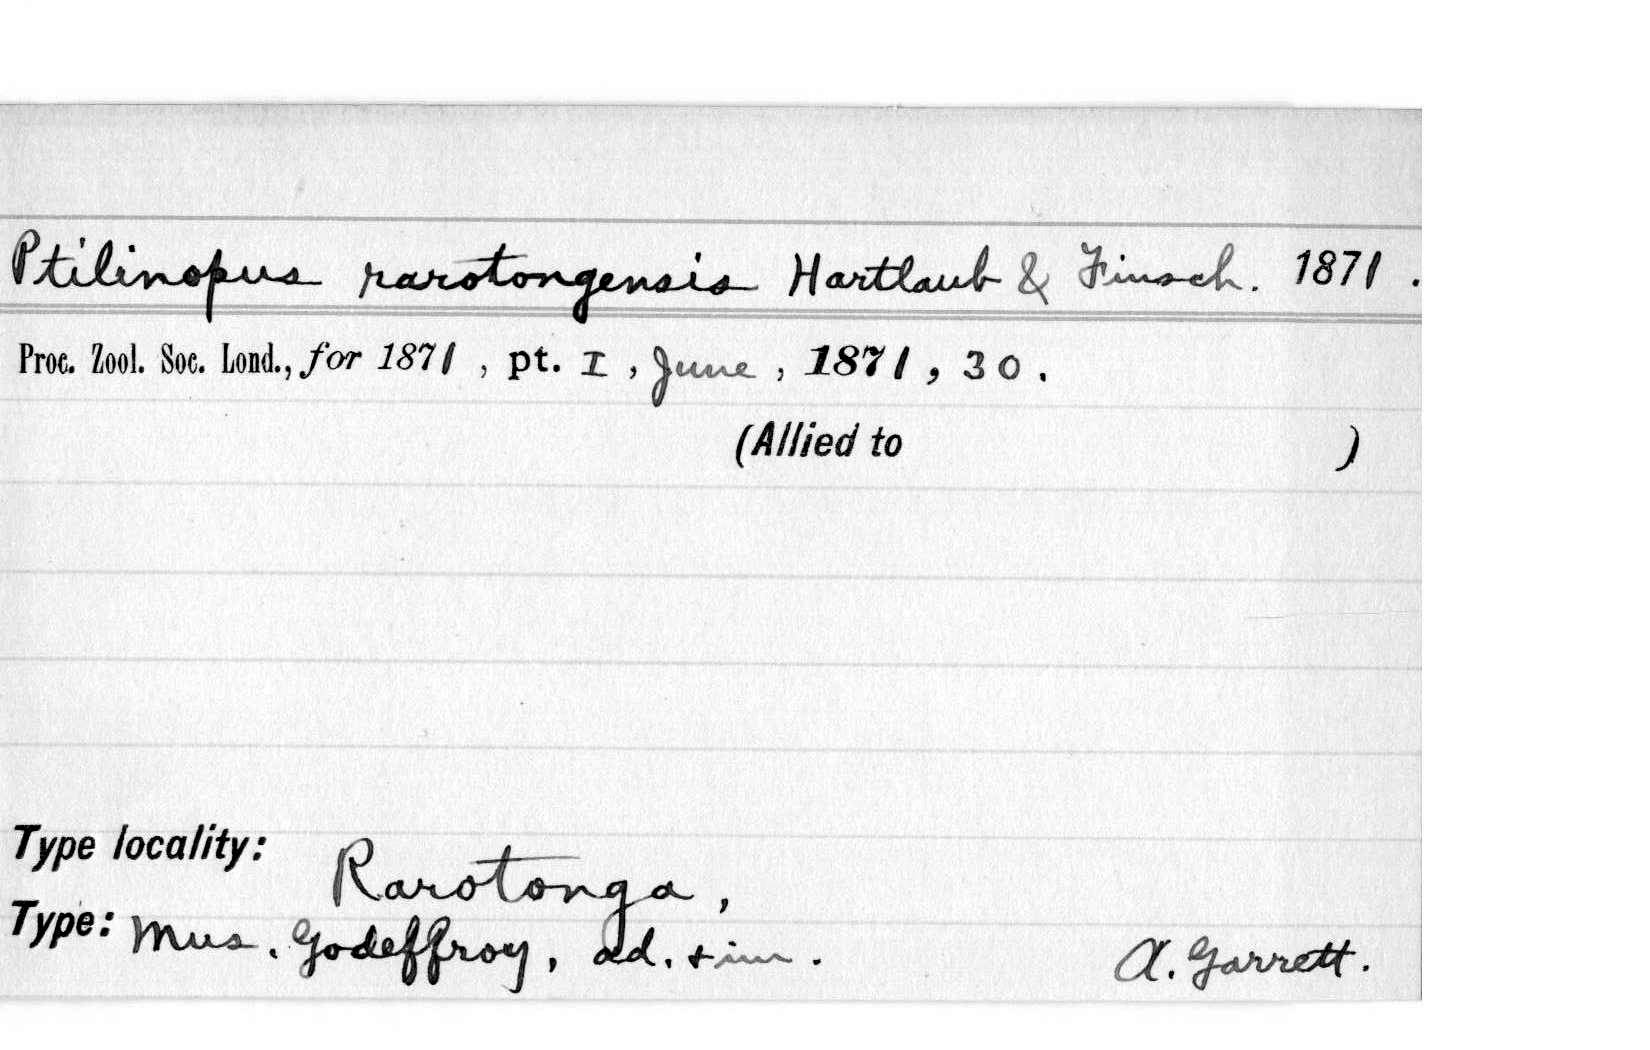 Ptilinopus rarotongensis Hartlaub & Finsch. 1871.
Proc. Zool. Soc. Lond., for 1871, pt. I, June, 1871, 30.
(Allied to )
Type locality: Rarotonga,
Type: Mus. Godeffroy, ad. + im. A. Garrett.